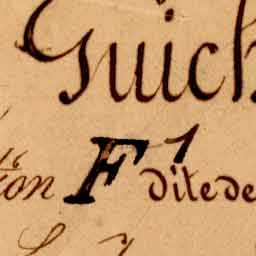 Guich
ion F¹ dite de